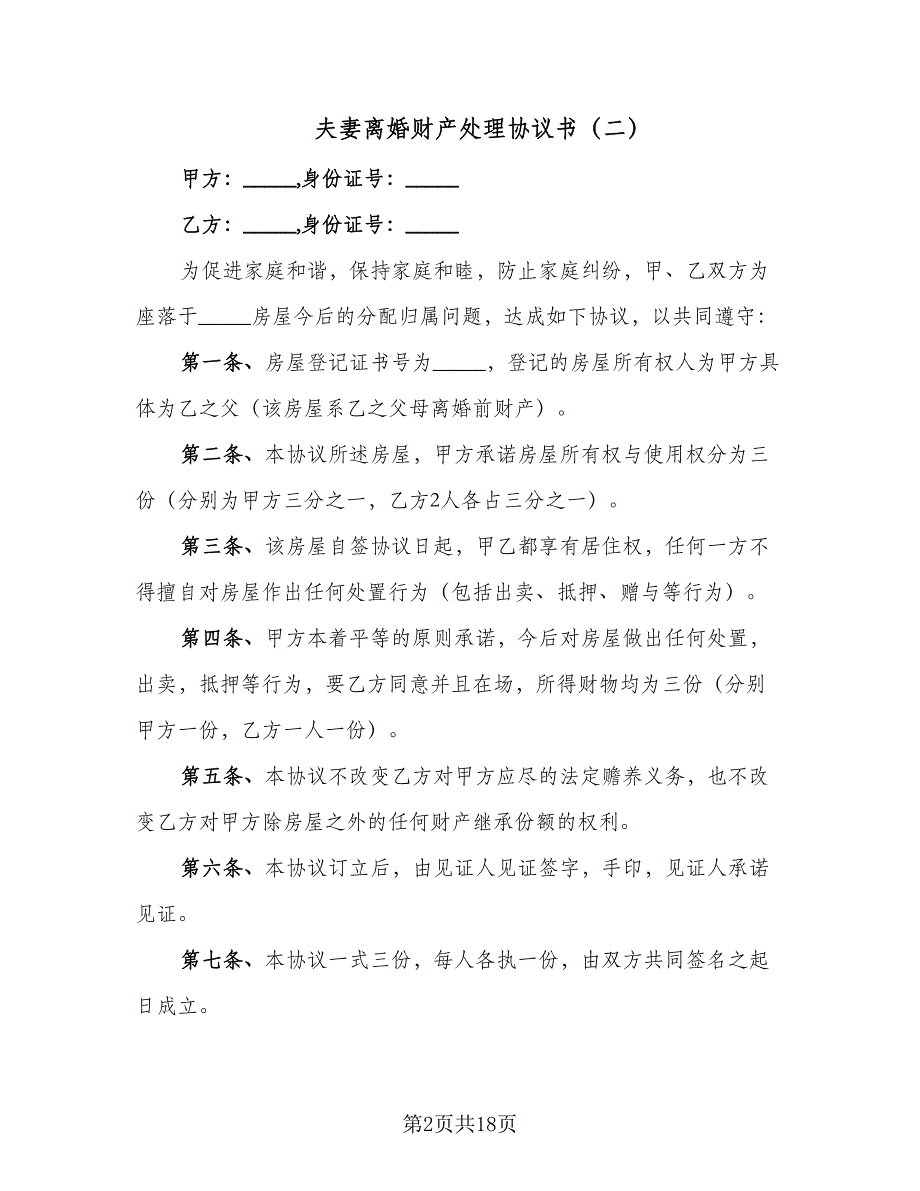 夫妻离婚财产处理协议书（二）
甲方：_____,身份证号：_____
乙方：_____,身份证号：_____
为促进家庭和谐，保持家庭和睦，防止家庭纠纷，甲、乙双方为
座落于_____房屋今后的分配归属问题，达成如下协议，以共同遵守：
第一条、房屋登记证书号为_____，登记的房屋所有权人为甲方具
体为乙之父（该房屋系乙之父母离婚前财产）。
第二条、本协议所述房屋，甲方承诺房屋所有权与使用权分为三
份（分别为甲方三分之一，乙方2人各占三分之一）。
第三条、该房屋自签协议日起，甲乙都享有居住权，任何一方不
得擅自对房屋作出任何处置行为（包括出卖、抵押、赠与等行为）。
第四条、甲方本着平等的原则承诺，今后对房屋做出任何处置，
出卖，抵押等行为，要乙方同意并且在场，所得财物均为三份（分别
甲方一份，乙方一人一份）。
第五条、本协议不改变乙方对甲方应尽的法定赡养义务，也不改
变乙方对甲方除房屋之外的任何财产继承份额的权利。
第六条、本协议订立后，由见证人见证签字，手印，见证人承诺
见证。
第七条、本协议一式三份，每人各执一份，由双方共同签名之起
日成立。
第2页共18页